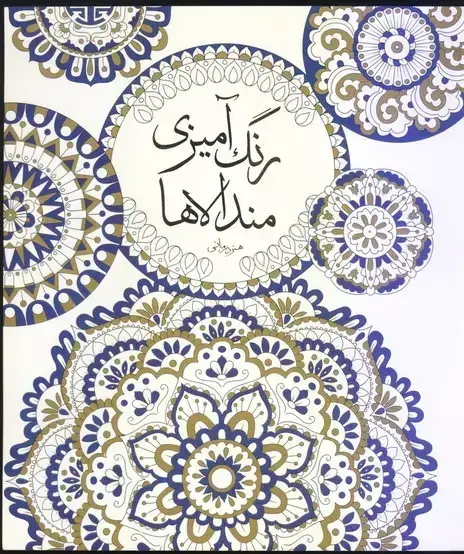 رنگ آمیزی
ماندالاها
هنردرمانی